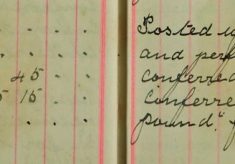 45
5 15
Posted u
and per
conferred
conferre
pound." f